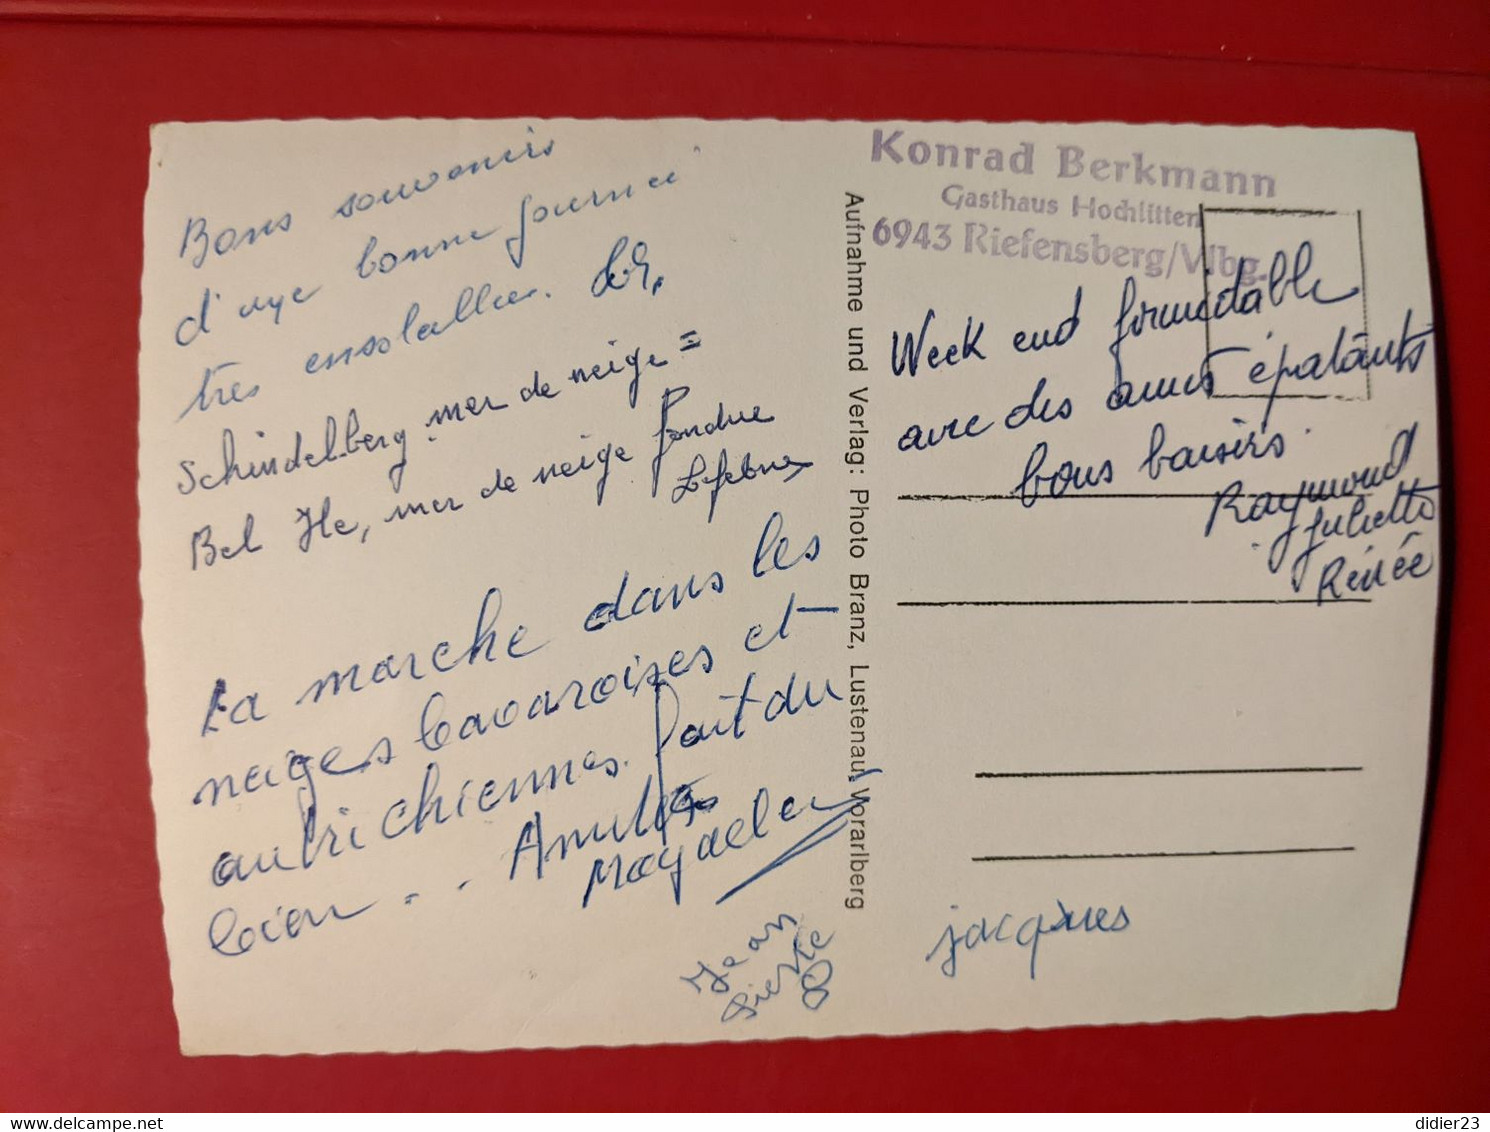 Bons souvenirs
d'une bonne journée
très ensoleillée.
Schindelberg mer de neige =
Bel Ile, mer de neige fondue
Lefebvre
La marche dans les
neiges bavaroises et
autrichiennes. fait du
bien . . Amitiés
Jean
Pierre
Aufnahme und Verlag: Photo Branz, Lustenau, Vorarlberg
Konrad Berkmann
Gasthaus Hochlitten
6943 Riefensberg/Vlbg.
Week end formidable
avec des amis épatants
bons baisers.
Raymond
Juliette
Renée
jacques
didier23